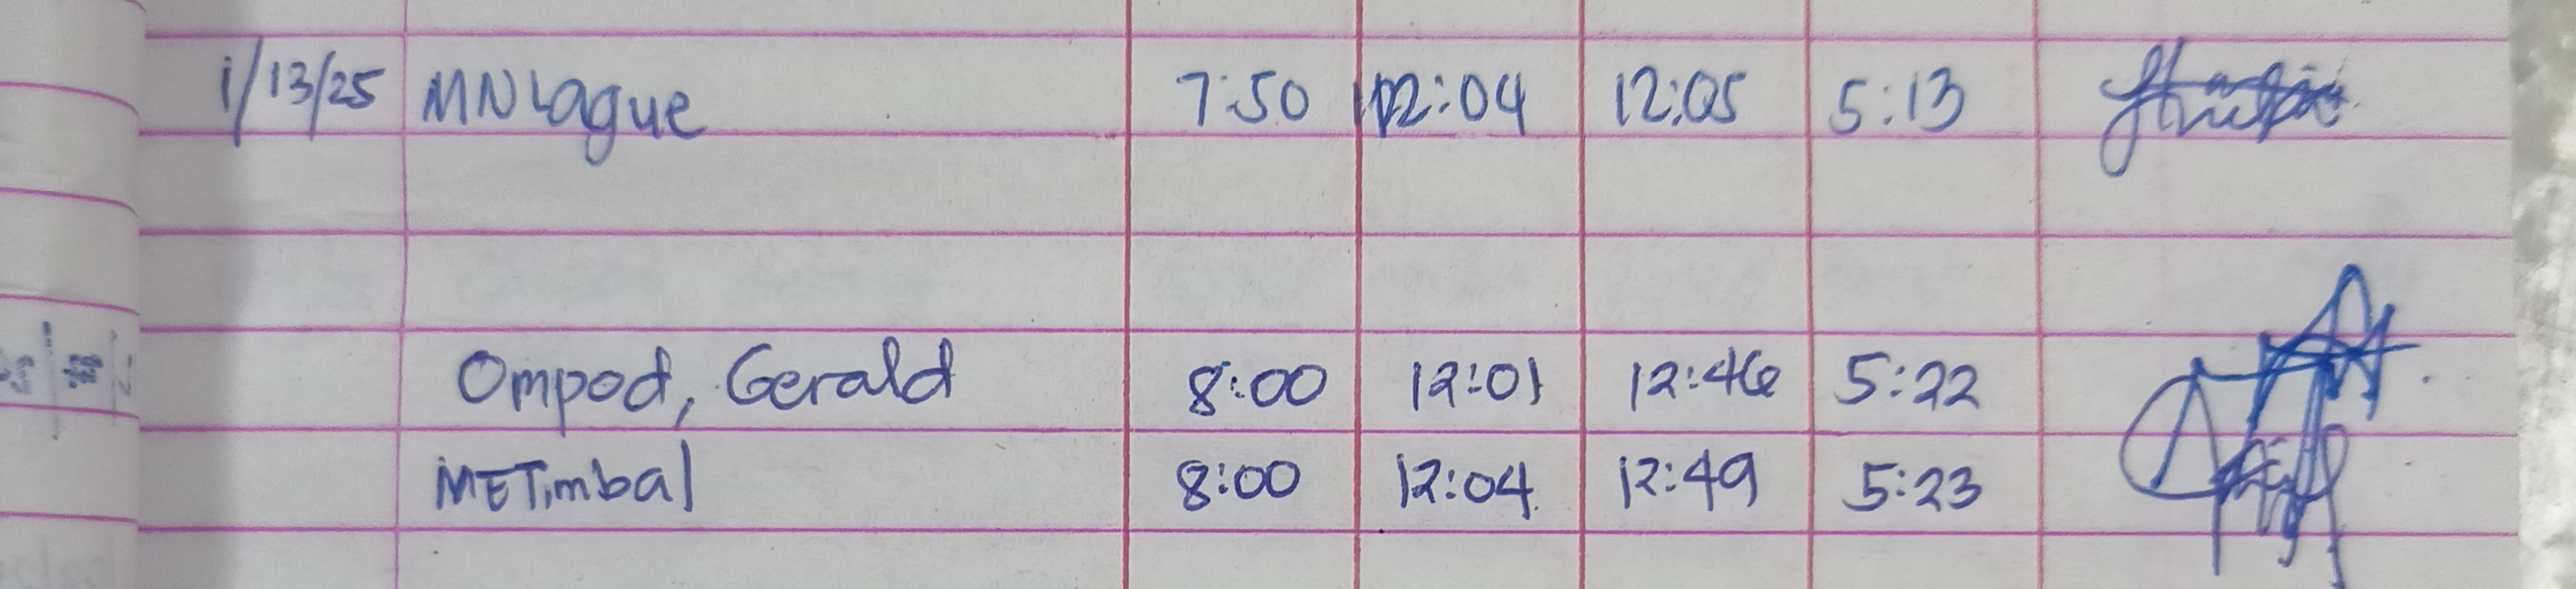 1/13/25 MNLague 7:50 12:04 12:05 5:13
Ompod, Gerald 8:00 12:01 12:46 5:22
METimbal 8:00 12:04 12:49 5:23